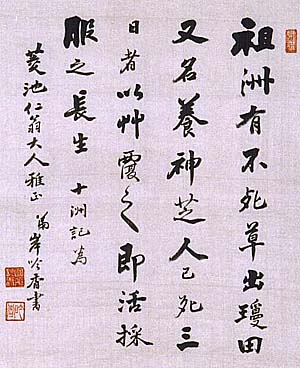 祖洲有不死草出瓊田
又名養神芝人已死三
日者以艸覆之即活採
服之長生 十洲記為
菱池仁翁大人雅正 岸吟香書